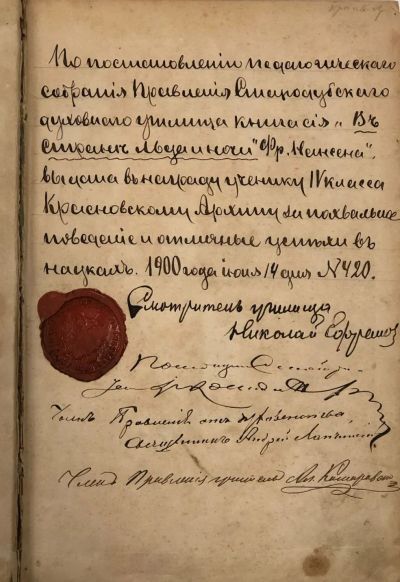 По постановленіи педагогическаго
собранія Правленія Стародубскаго
духовнаго училища книга сія „Въ
странѣ льда и ночи" Фр. Нансена",
выдана въ награду ученику IV класса
Красновскому Архипу за похвальное
поведеніе и отличные успѣхи въ
наукахъ. 1900 года іюля 14 дня № 420.
Смотритель училища
Николай Ефремов
Члень Правленія отъ духовенства,
Священникъ Андрей
Членъ Правленія учитель